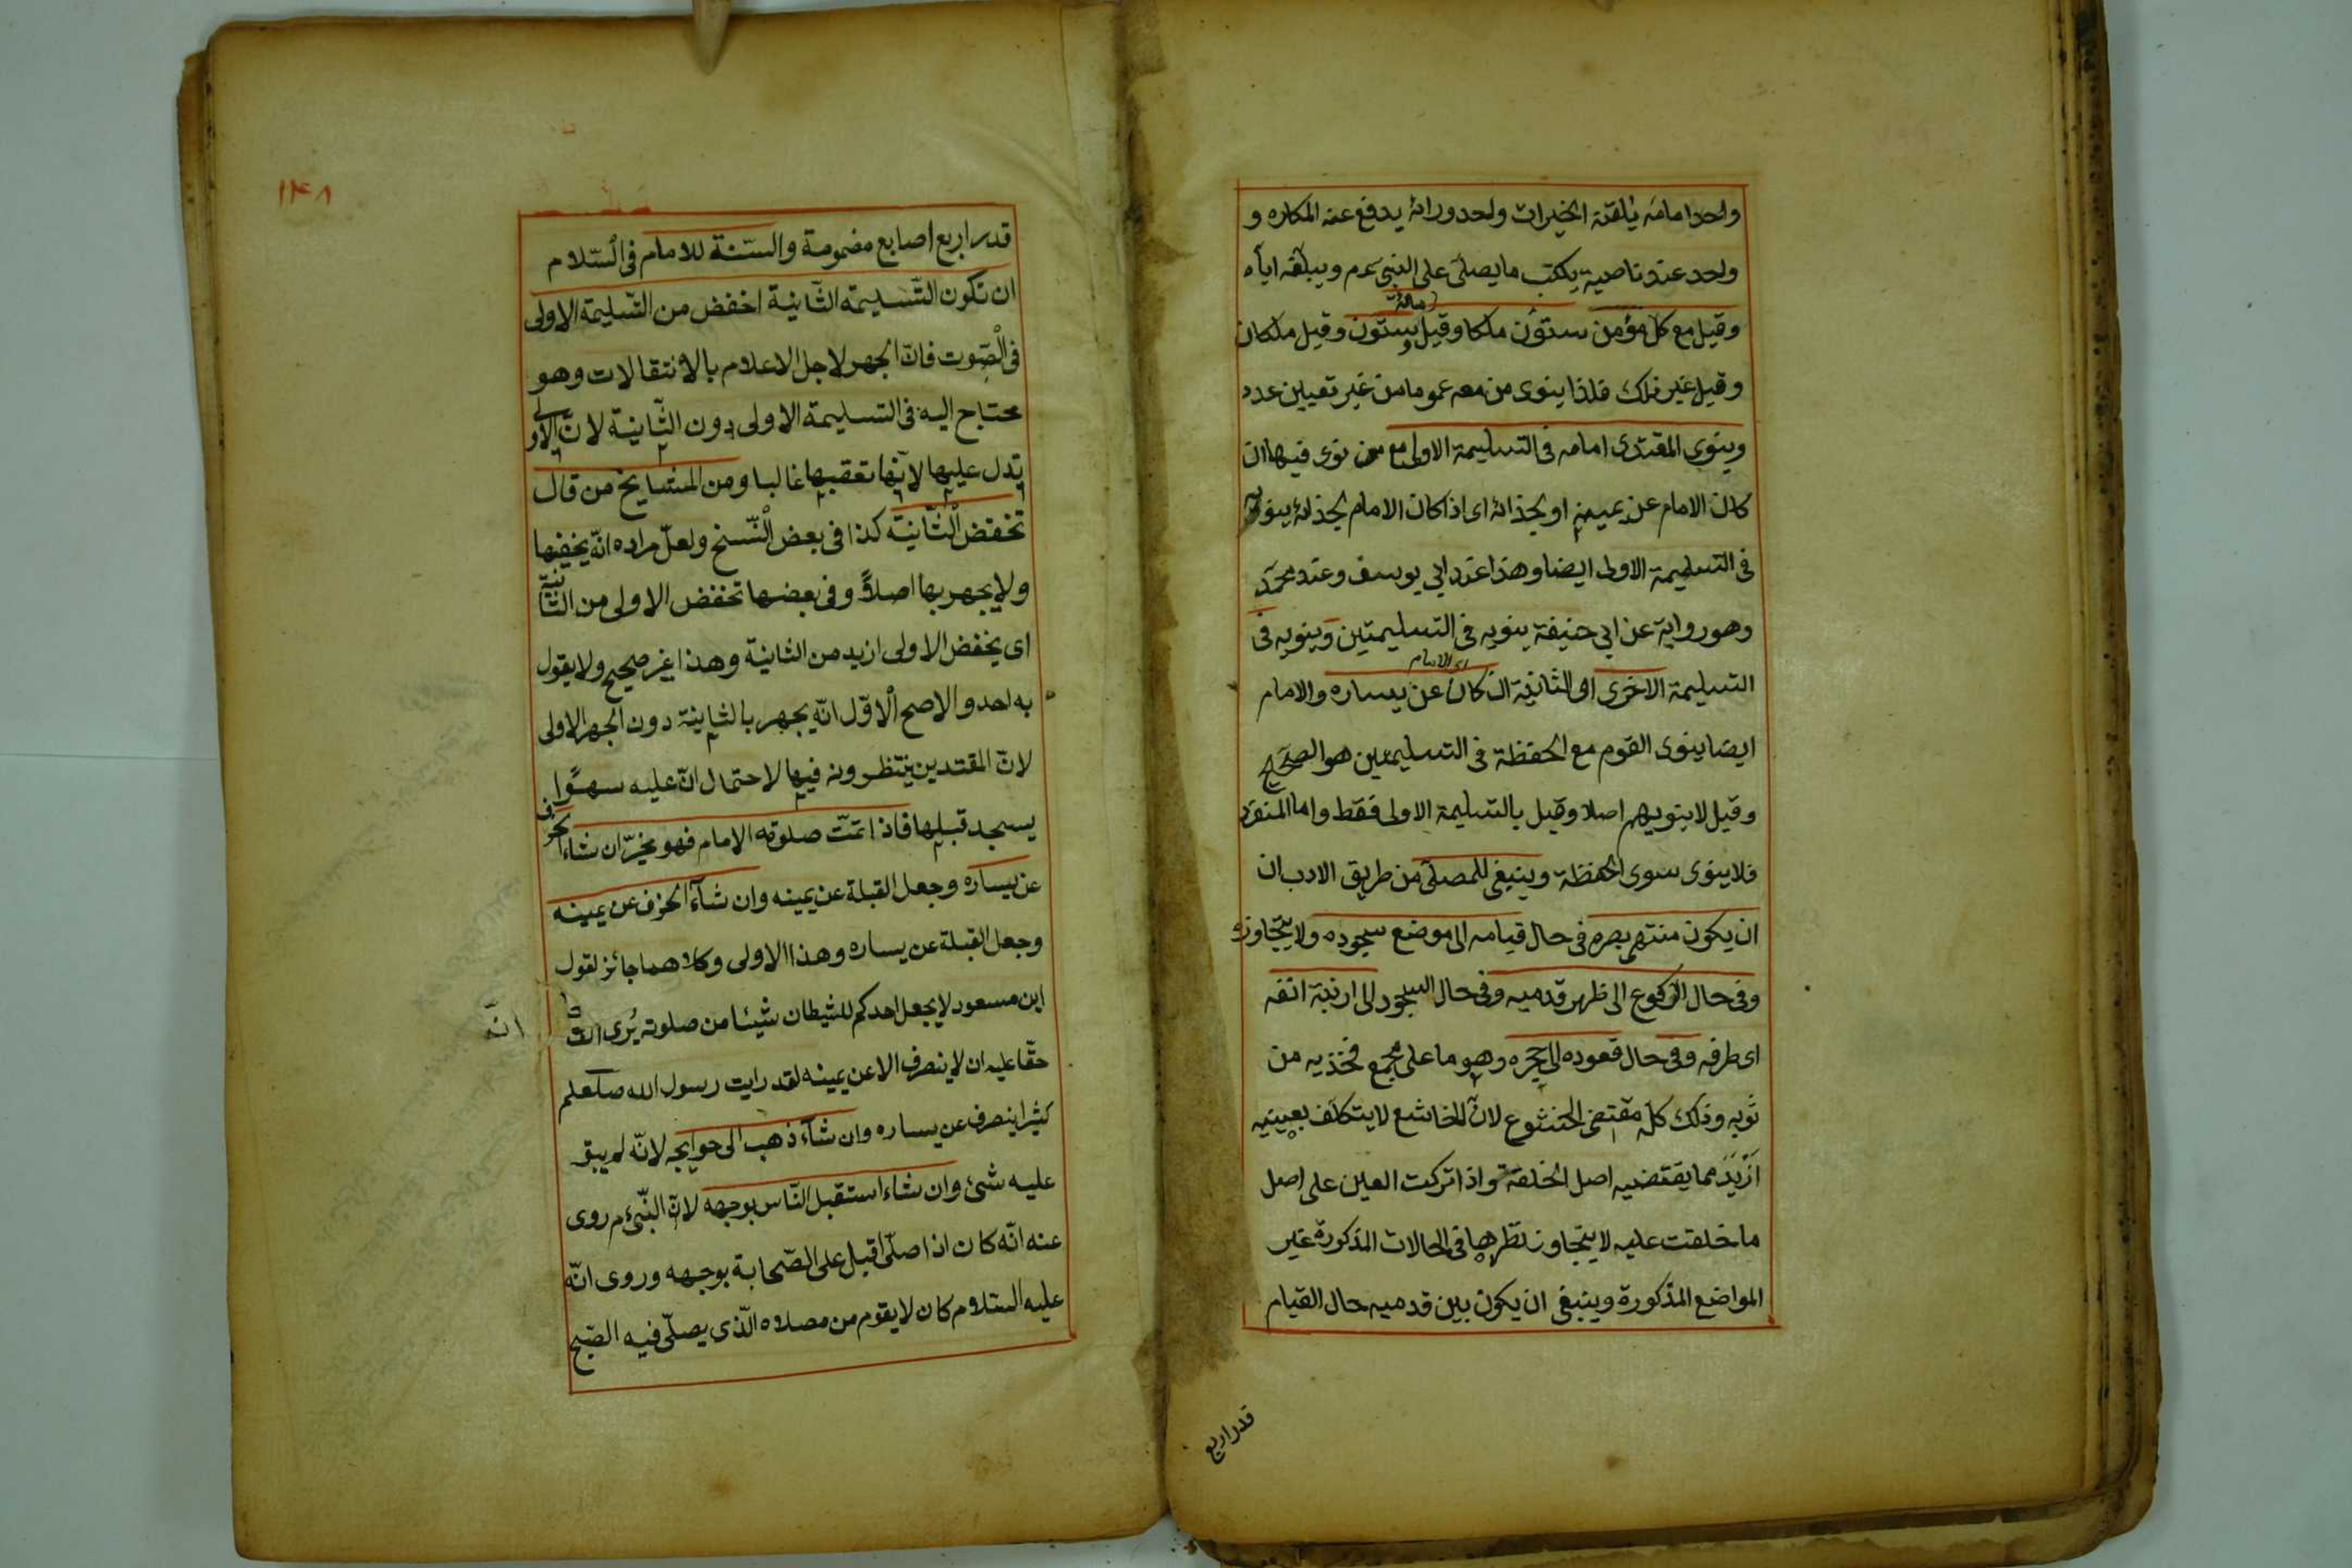 واحد امامه يلقنه الخيرات واحد ورائه يدفع عنه المكاره و
واحد عند ناصيته يكتب ما يصلى على النبى عم ويبلغه اياه
مائة
وقيل مع كل مؤمن ستون ملكا وقيل وستون وقيل ملكان
وقيل غير ذلك فلذا ينوى من معه عموما من غير تعيين عدد
وينوى المقتدى امامه فى التسليمة الاولى مع من نوى فيها ان
كان الامام عن يمينه او بحذائه اى اذا كان الامام بحذائه ينويه
فى التسليمة الاولى ايضا وهذا عند ابي يوسف وعند محمّد
وهو رواية عن ابي حنيفة ينويه فى التسليمتين وينويه فى
اى الامام
التسليمة الاخرى اى الثانية ان كان عن يساره والامام
ايضا ينوى القوم مع الحفظة فى التسليمتين هو الصحيح
وقيل لا ينويهم اصلا وقيل بالتسليمة الاولى فقط واما المنفرد
فلا ينوى سوى الحفظة وينبغى للمصلّى من طريق الادب ان
ان يكون منتهى بصره فى حال قيامه الى موضع سجوده ولا يتجاوزه
وفى حال الركوع الى ظهر قدميه وفى حال السجود الى ارنبة انفه
اى طرفه وفى حال قعوده الى حجره وهو ما على مجمع فخذيه من
ثوبه وذلك كلّه مقتضى الخشوع لانّ الخاشع لا يتكلف بعينيه
ازيد مما يقتضيه اصل الخلقة واذا تركت العين على اصل
ما خلقت عليه لا يتجاوز نظرها فى الحالات المذكورة غير
المواضع المذكورة وينبغى ان يكون بين قدميه حال القيام
قدر اربع
١٤٨
قدر اربع اصابع مضمومة والسّنة للامام فى السّلام
ان تكون التّسليمة الثّانية اخفض من التّسليمة الاولى
فى الصّوت فانّ الجهر لاجل الاعلام بالانتقالات وهو
محتاج اليه فى التسليمة الاولى دون الثّانية لانّ الاولى
تدل عليها لانّها تعقبها غالبا ومن المشايخ من قال
تخفض الثّانية كذا فى بعض النّسخ ولعلّ مراده انّه يخفيها
ولا يجهر بها اصلاً وفى بعضها تخفض الاولى من الثّانية
اى يخفض الاولى ازيد من الثانية وهذا غير صحيح ولا يقول
به احد والاصح الاوّل انّه يجهر بالثانية دون الجهر الاولى
لانّ المقتدين ينتظرونه فيها لاحتمال انّ عليه سهوًا
يسجد قبلها فاذا تمّت صلوة الامام فهو مخيّر ان شاء انحرف
عن يساره وجعل القبلة عن يمينه وان شآء انحرف عن يمينه
وجعل القبلة عن يساره وهذا الاولى وكلاهما جائز لقول
ابن مسعود لا يجعل احدكم للشيطان شيئا من صلوته يُرى
انّه
حقّا عليه ان لا ينصرف الا عن يمينه لقد رايت رسول الله صلعلم
كثيرا ينصرف عن يساره وان شآء ذهب الى حوايجه لانّه لم يبق
عليه شئ وان شاء استقبل النّاس بوجهه لانّ النّبى م روى
عنه انّه كان اذا صلّى اقبل على الصّحابة بوجهه وروى انّه
عليه السّلام كان لا يقوم من مصلاه الّذى يصلّى فيه الصّبح